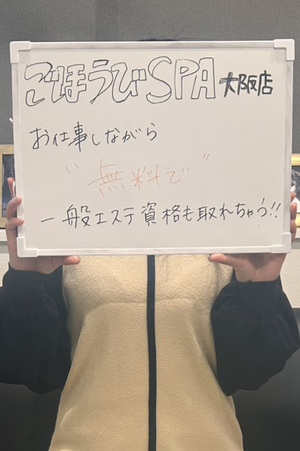 ごほうびSPA 大阪店
お仕事しながら
"無料で"
一般エステ資格も取れちゃう!!